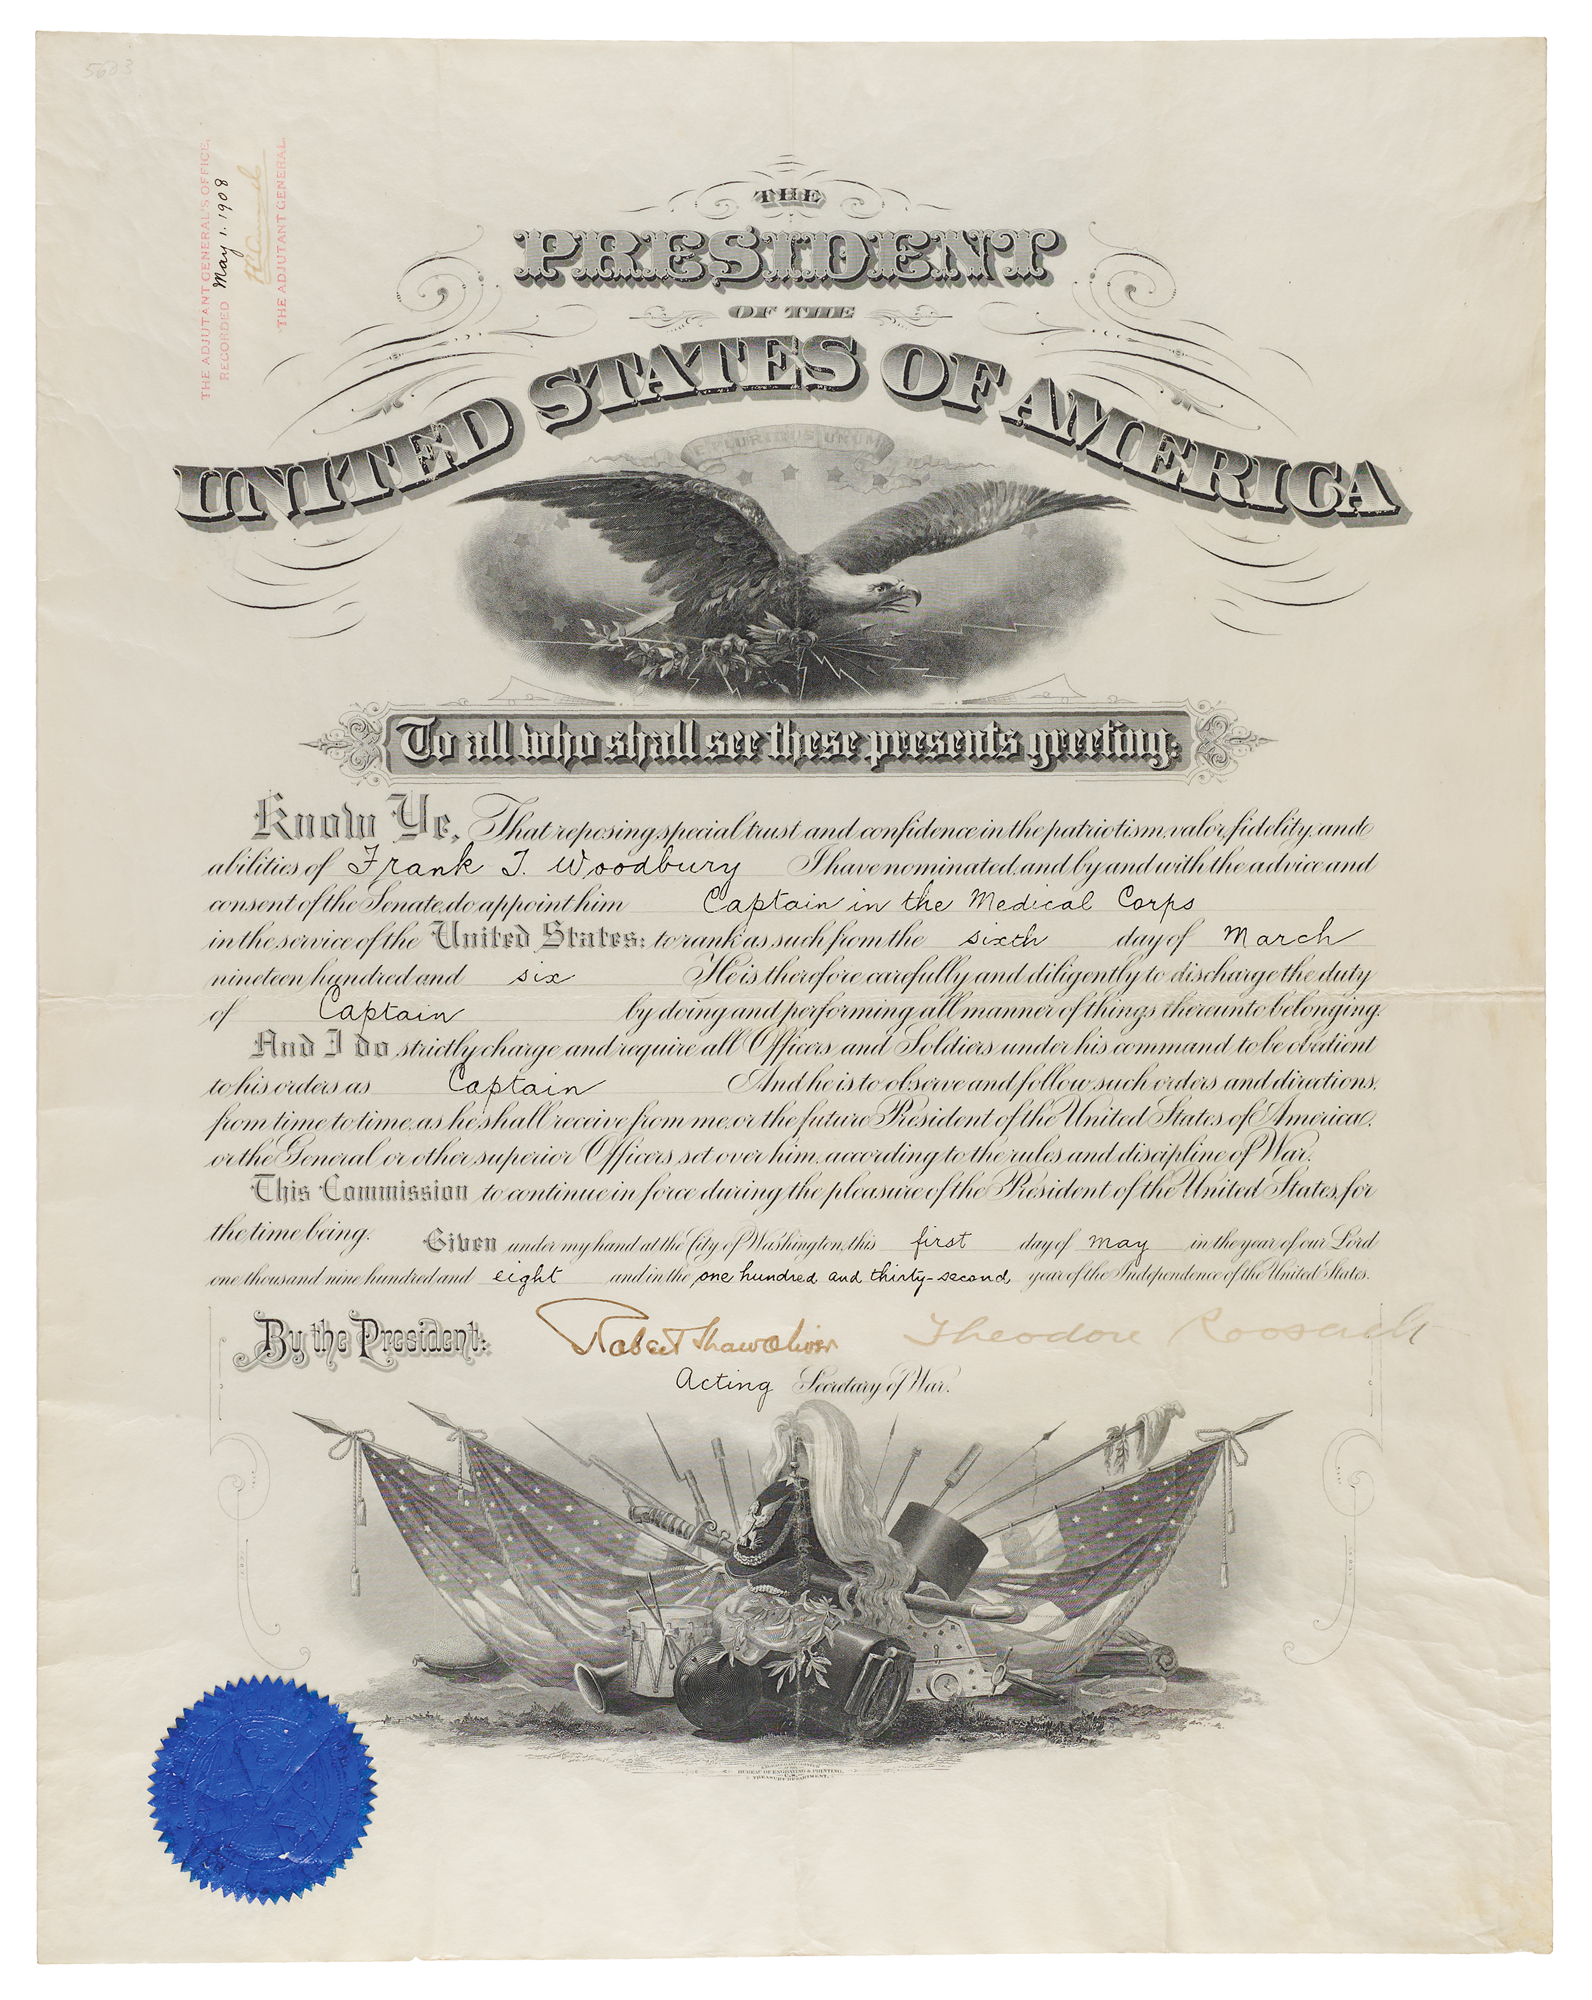 THE ADJUTANT GENERAL'S OFFICE,
RECORDED May 1. 1908
THE ADJUTANT GENERAL.
THE
PRESIDENT
OF THE
UNITED STATES OF AMERICA
E PLURIBUS UNUM
To all who shall see these presents greeting:
Know Ye, That reposing special trust and confidence in the patriotism, valor, fidelity, and
abilities of Frank T. Woodbury I have nominated, and by and with the advice and
consent of the Senate, do appoint him Captain in the Medical Corps
in the service of the United States: to rank as such from the sixth day of March
nineteen hundred and six He is therefore carefully and diligently to discharge the duty
of Captain by doing and performing all manner of things thereunto belonging.
And I do strictly charge and require all Officers and Soldiers under his command to be obedient
to his orders as Captain And he is to observe and follow such orders and directions,
from time to time, as he shall receive from me, or the future President of the United States of America,
or the General or other superior Officers set over him, according to the rules and discipline of War.
This Commission to continue in force during the pleasure of the President of the United States, for
the time being. Given under my hand at the City of Washington, this first day of May in the year of our Lord
one thousand nine hundred and eight and in the one hundred and thirty-second year of the Independence of the United States.
By the President: Robert Shaw Oliver Theodore Roosevelt
Acting Secretary of War.
BUREAU OF ENGRAVING & PRINTING,
TREASURY DEPARTMENT.